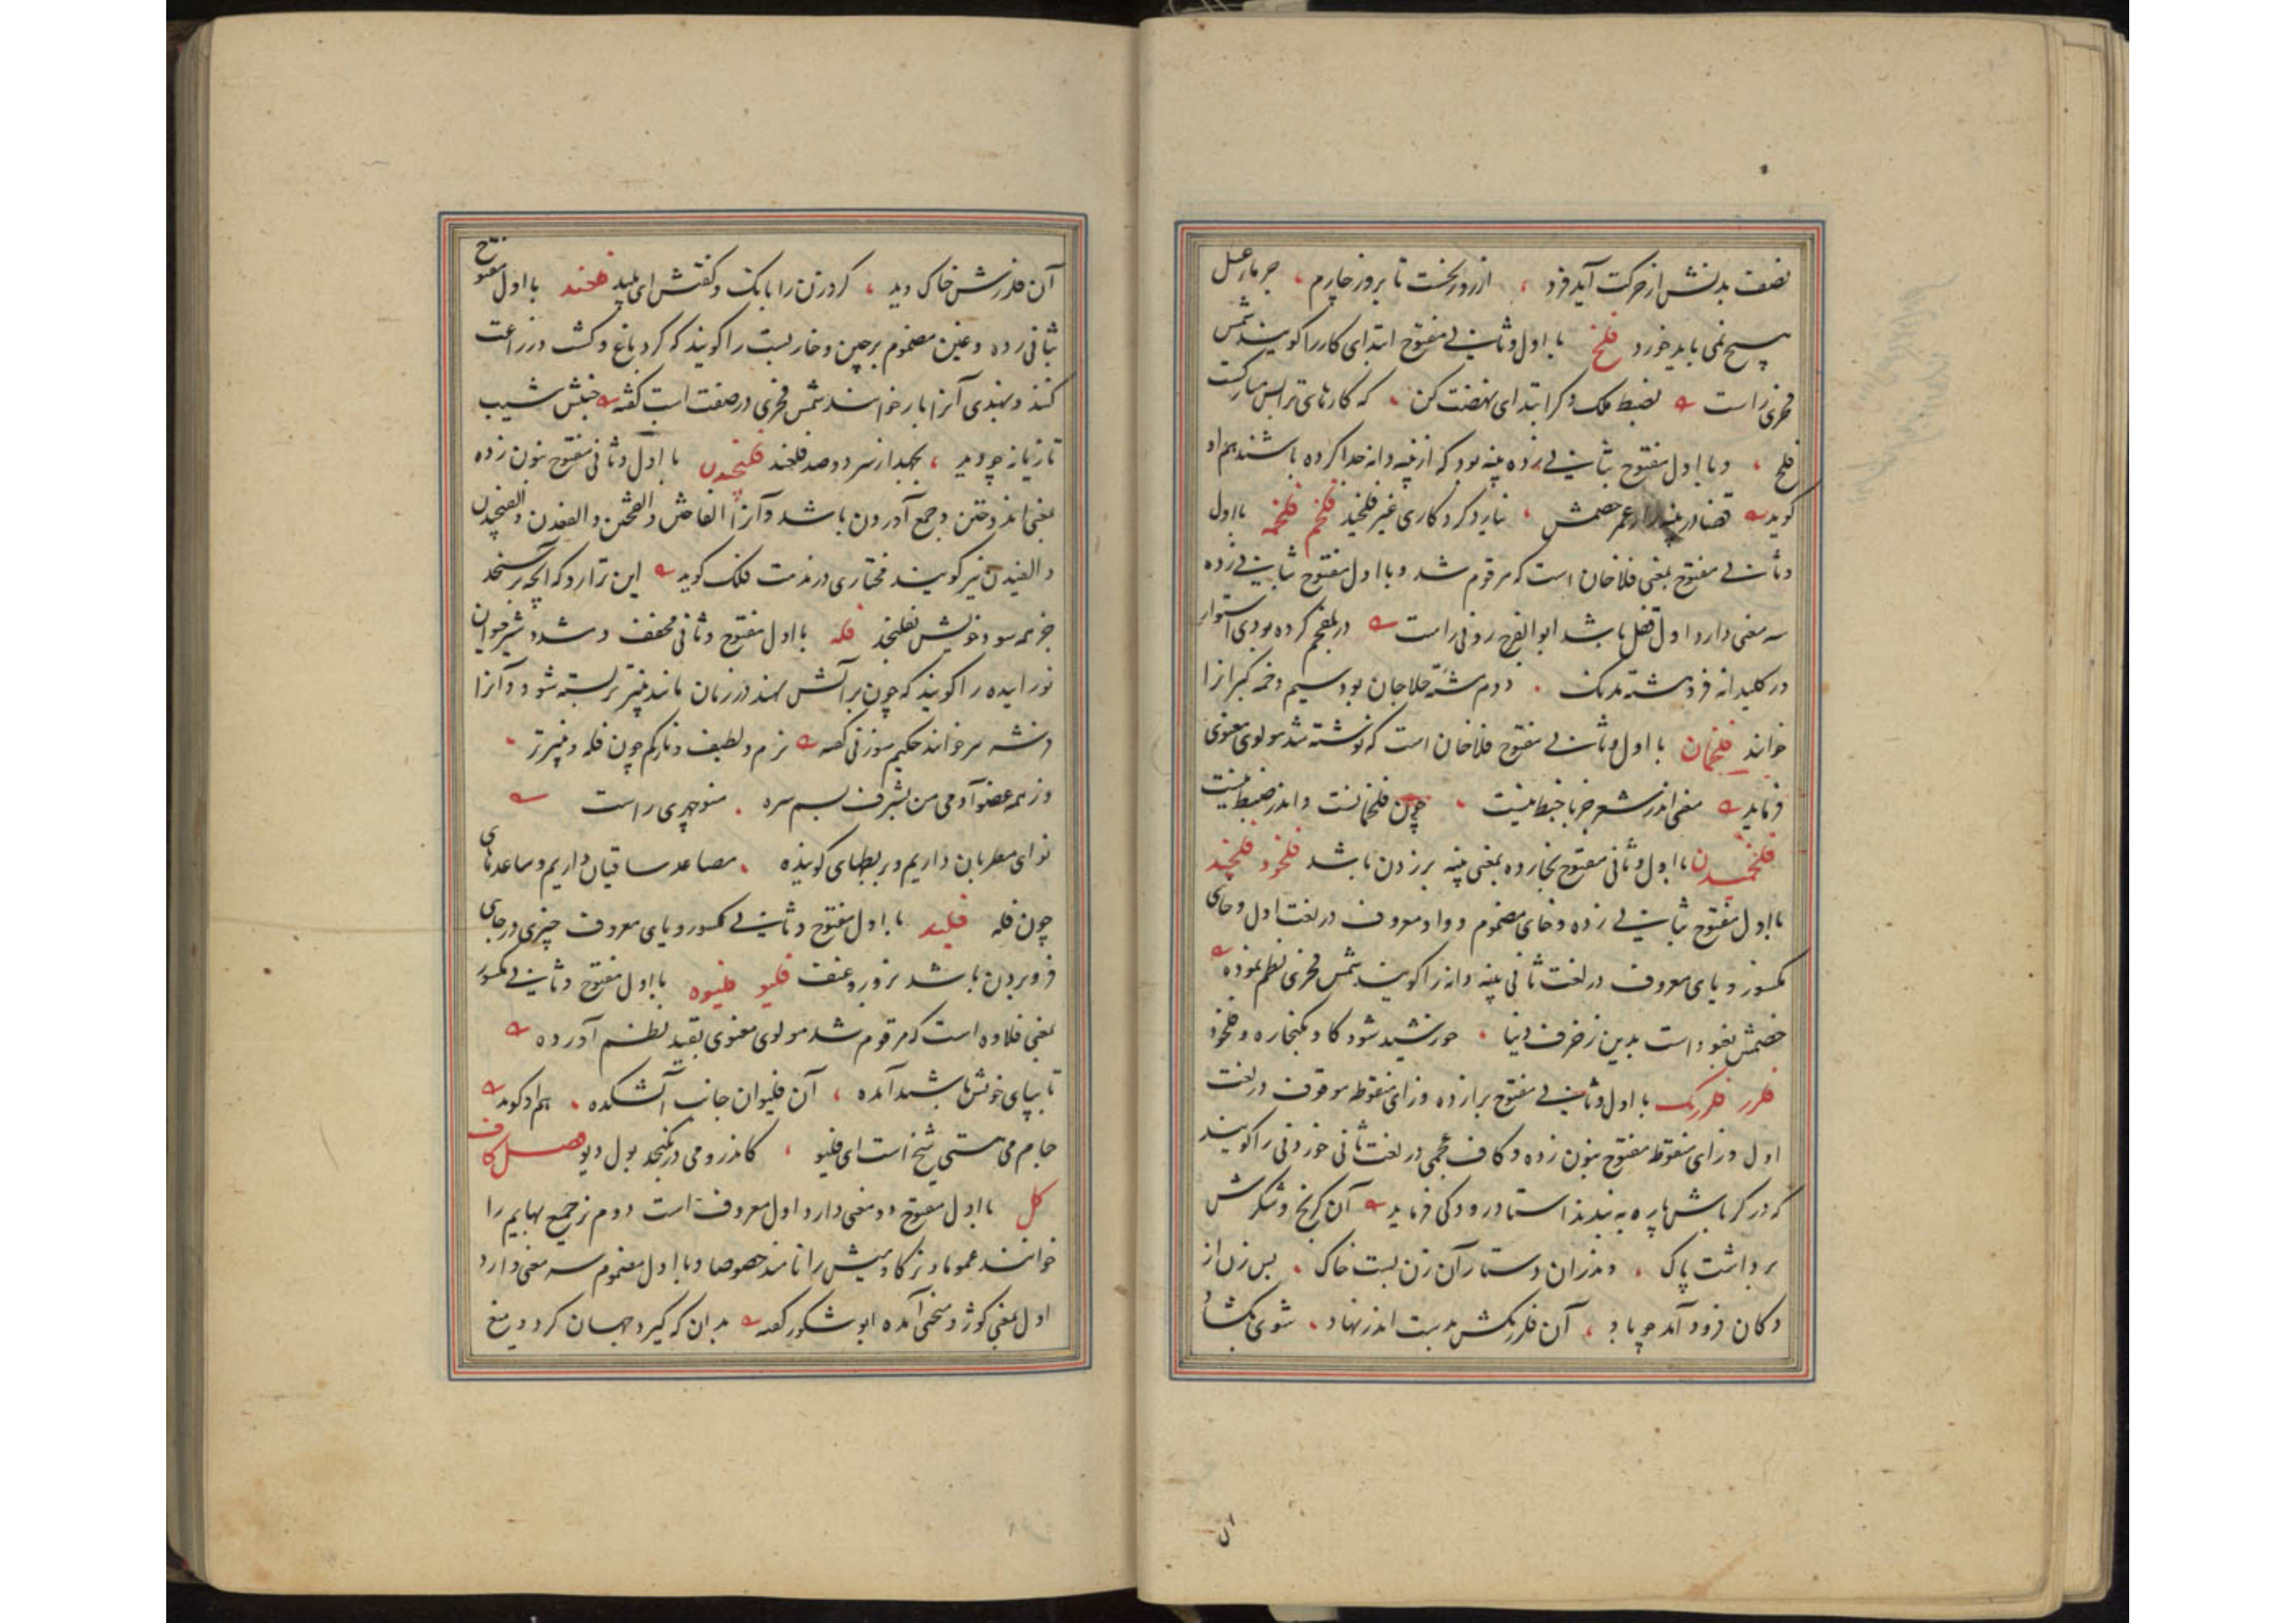 نصف بدنش از حرکت آید فرد ، از روز نخست تا بروز چارم ، جرمار عسل
هیچ نمی باید خورد فلخ با اول و ثانی مفتوح ابتدای کار را گویند شمس
فخری راست بضبط ملک دگر ابتدای نهضت کن ، که کارهای ترا بس مبارکست
فلخ ، و با اول مفتوح بثانی زده پنبه بود که از پنبه دانه جدا کرده باشند هم او
گوید قضا در پنبه زار عمر خصمش ، نیارد کرد کاری غیر فلخید فلخم فلخمه با اول
و ثانی مفتوح بمعنی فلاخان است که مرقوم شد و با اول مفتوح بثانی زده
سه معنی دارد اول قفل باشد ابوالفرج رونی راست در بفلخم کرده بودی استوار
در کلیدانه فرو هشته مدنگ . دوم مشته حلاجان بود سیم دخمه گبرانرا
خوانند فلخمان با اول و ثانی مفتوح فلاخان است که نوشته شد مولوی معنوی
فرماید معنی اندر شعر جز با خبط نیست ، چون فلخمانست و اندر ضبط نیست
فلخمیدن با اول و ثانی مفتوح بخا زده بمعنی پنبه بر زدن باشد فلخود فلخید
با اول مفتوح بثانی زده و خای مضموم و واو معروف در لغت اول و خای
مکسور و یای معروف در لغت ثانی پنبه دانه را گویند شمس فخری نظم نموده
خصمش بغنود است بدین زخرف دنیا ، خورشید شود گاو بکنجاره و فلخود
فلرز فلرزنگ با اول و ثانی مفتوح برا زده و زای منقوطه موقوف در لغت
اول و زای منقوط مفتوح بنون زده و کاف عجمی در لغت ثانی خوردنی را گویند
که در کرباس پاره به بندند استاد رودکی فرماید آن کرنج و شکرش
برداشت پاک ، وندران دستار آن زن بست خاک ، پس زن از
دکان فرود آمد چو باد ، آن فلرزنگش بدست اندر نهاد ، شوی بگشاد
آن فلرزش خاک دید ، کرد زن را بانک و گفتش ای پلید فلغند با اول مفتوح
بثانی زده و غین مضموم پرچین و خاربست را گویند که گرد باغ و کشت و زراعت
کنند و بهندی آنرا بار خوانند شمس فخری در صفت اسب گفته جنبش شیب
تازیانه چو دید ، بجهد از سر دو صد فلغند فلنجیدن با اول و ثانی مفتوح بنون زده
بمعنی اندوختن و جمع آوردن باشد و آنرا الفاختن و الفختن و الفغدن و الفنجیدن
و الفیدن نیز گویند مختاری در مذمت فلک گوید این ترازو که آنچه بر سنجد
جز همه سود خویش نفلنجد فله با اول مفتوح و ثانی مخفف و مشدد شیر حیوان
نو زاییده را گویند که چون بر آتش نهند در زمان مانند پنیر تر بسته شود و آنرا
و نشه مر خوانند حکیم سوزنی گفته نرم و لطیف و نازکم چون فله و پنیر تر ،
وز همه عضو آدمی من بشرف بسم سره . منوچهری راست
نوای مطربان داریم و بربطهای گوینده ، مصاعد ساقیان داریم و ساعدهای
چون فله فلید با اول مفتوح و ثانی مکسور و یای معروف چیزی در جای
فرو بردن باشد بزور و عنف فلیو فلیوه با اول مفتوح و ثانی مکسور
بمعنی فلاده است که مرقوم شد مولوی معنوی بقید نظم آورده
تا بپای خویش باشید آمده ، آن فلیوان جانب آتشکده ، هم او گوید
جام می هستی شیخ است ای فلیو ، کاندرو می در نگنجد بول دیو فصل کاف
کل با اول مفتوح دو معنی دارد اول معروفست دوم نر جمیع بهایم را
خوانند عموما و نر گاومیش را نامند خصوصا و با اول مضموم سه معنی دارد
اول بمعنی کوژ و منحنی آمده ابو شکور گفته بدان که گیرد جهان گرد و میغ